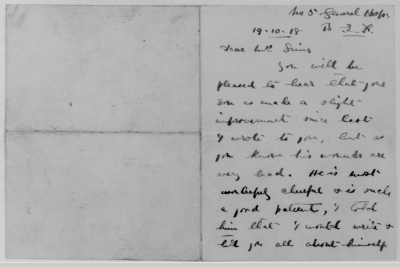 No 5 General Hosp.
19-10-18 B.E.F.
Dear Mrs Sims
You will be
pleased to hear that your
son as make a slight
improvement since last
I wrote to you, but as
you know his wounds are
very bad. He is most
wonderfully cheerful & is such
a good patient, I told
him that I would write &
tell you all about himself